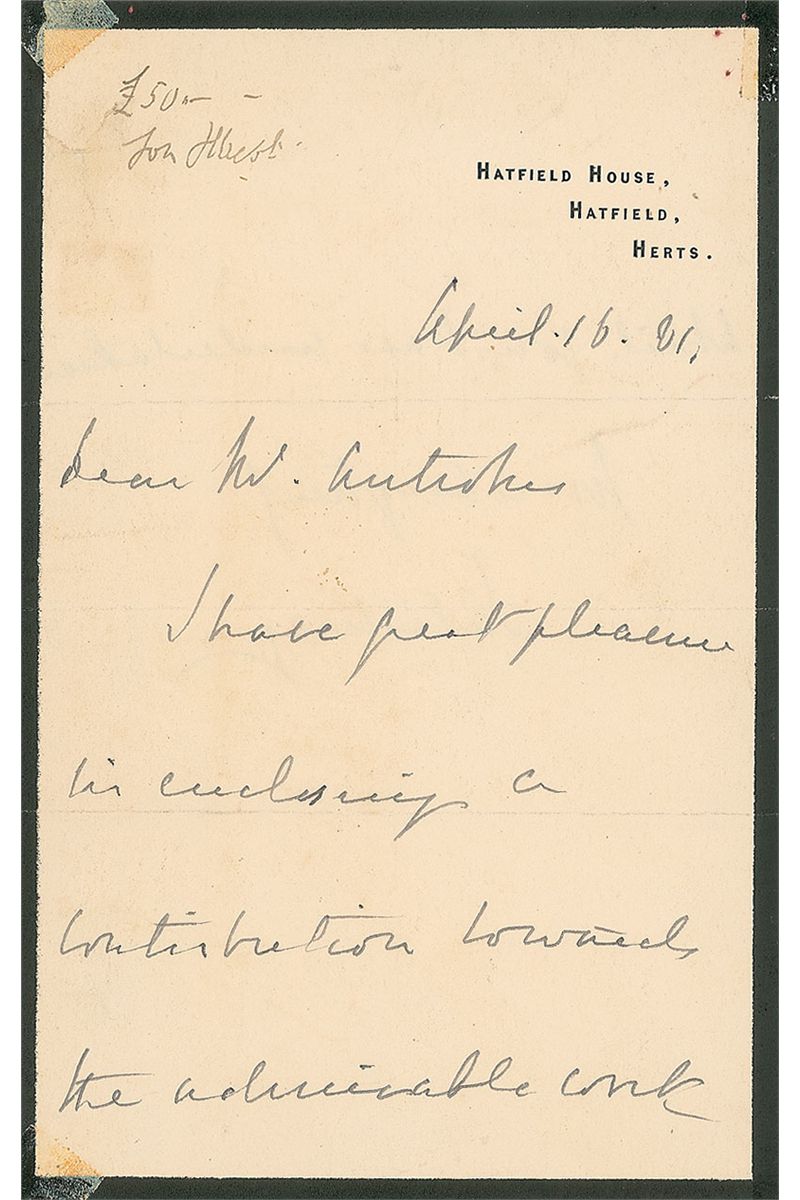 £50
HATFIELD HOUSE,
HATFIELD,
HERTS.
April. 16. 81.
Dear Mr. Antrobus
I have great pleasure
in enclosing a
contribution towards
the admirable work